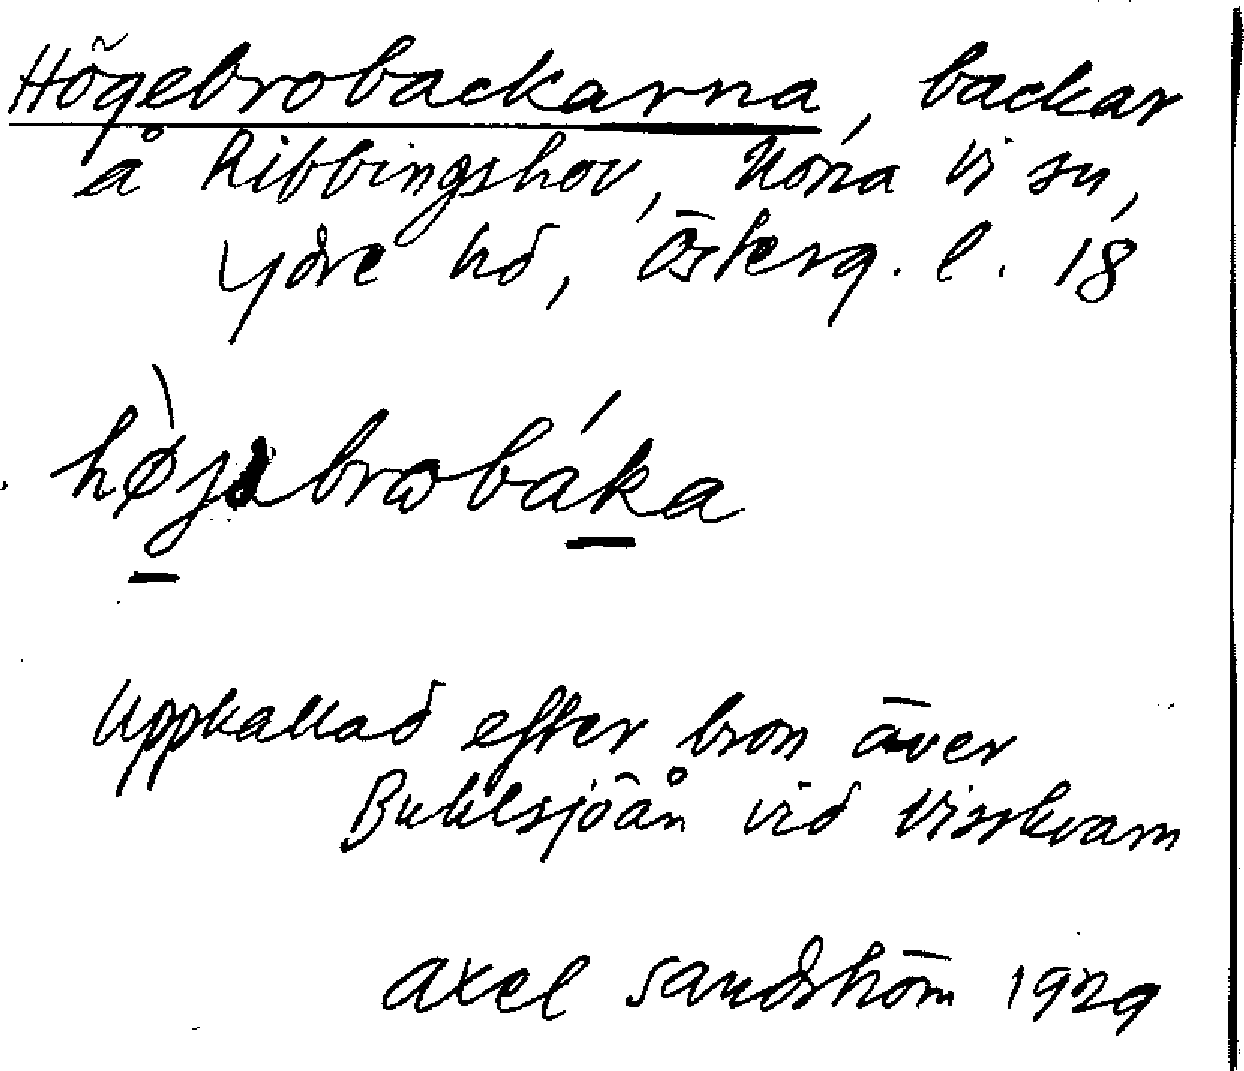 Högebrobackarna, backar
å Ribbingshov, Norra Vi sn,
Ydre hd, Österg. l. 18
højabrobáka
Uppkallad efter bron över
Bulsjöån vid Visskvarn
Axel Sandström 1929